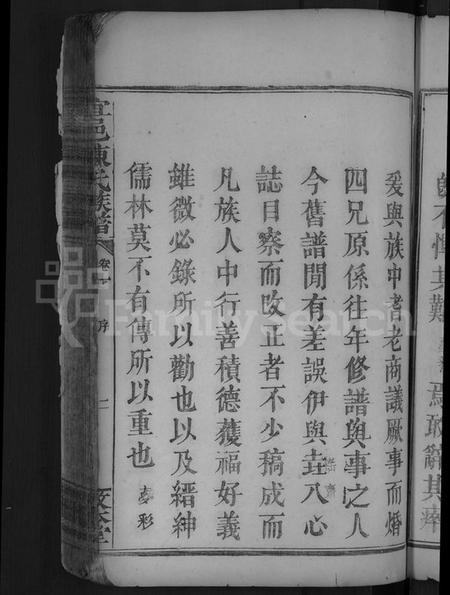 難其憚不
瘁其辭敢焉
爰與族中耆老商議厥事而燔
四兄原係往年修譜與事之人
今舊譜間有差誤伊與圭八心
誌目察而改正者不少稿成而
凡族人中行善積德獲福好義
雖微必錄所以勸也以及縉紳
儒林莫不有傳所以重也
彥彩
宜邑陳氏族譜
卷一
序
二
FamilySearch